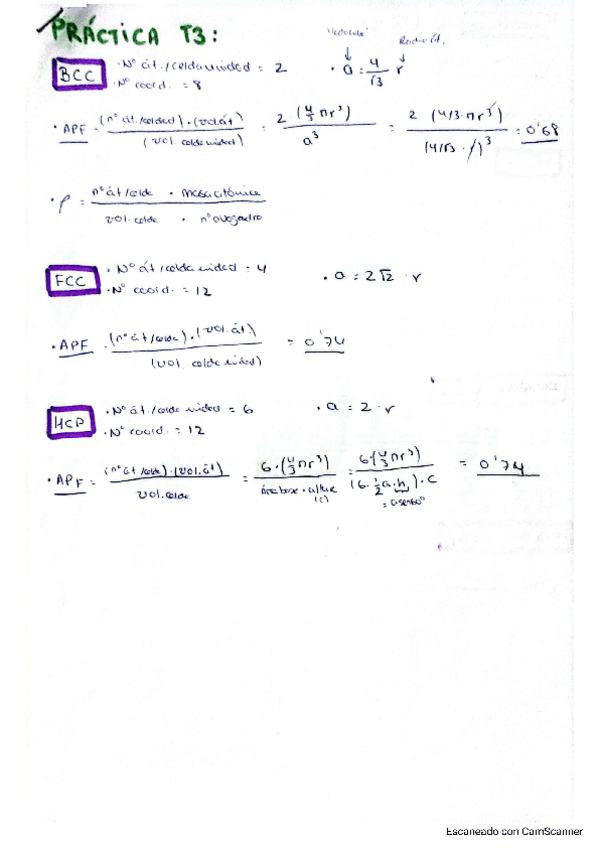 PRÁCTICA T3:
Radio át.
BCC
· Nº át./celda unidad = 2
· Nº coord. = 8
· a = 4/√3 r
· APF = (nº át/celda) · (vol. át) / (vol. celda unidad) = 2 (4/3 πr³) / a³ = 2 (4/3 · πr³) / (4/√3 · r)³ = 0'68
· ρ = nº át/celda · masa atómica / vol. celda · nº avogadro
FCC
· Nº át/celda unidad = 4
· Nº coord. = 12
· a = 2√2 · r
· APF · (nº át/celda) · (vol. át.) / (vol. celda unidad) = 0'74
HCP
· Nº át./celda unidad = 6
· Nº coord. = 12
· a = 2 · r
· APF = (nº át/celda) · (vol. át) / vol. celda = 6 · (4/3 πr³) / área base · altura (c) = 6 (4/3 πr³) / (6 · 1/2 a · h) · c = 0'74
= a sen 60°
Escaneado con CamScanner